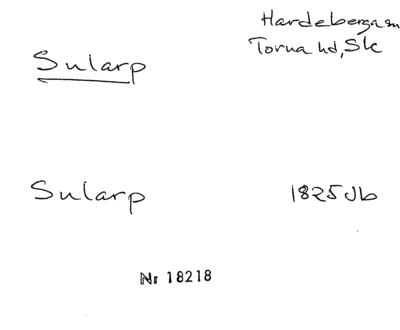 Hardeberga sn
Torna hd, Sk
Sularp
Sularp 1825 Jb
Nr 18218